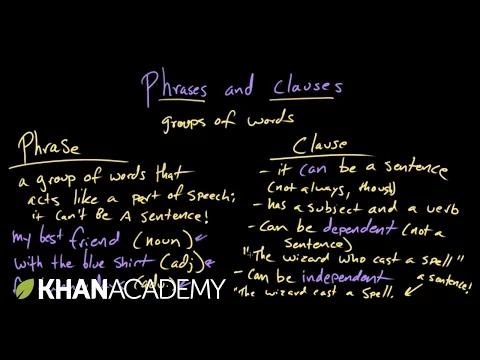 Phrases and clauses
groups of words
Phrase
a group of words that
acts like a part of speech;
it can't be a sentence!
my best friend (noun)
with the blue shirt (adj)
(adv)
Clause
- it can be a sentence
(not always, though)
- has a subject and a verb
- can be dependent (not a
sentence)
"The wizard who cast a spell"
- can be independent
a sentence!
"The wizard cast a spell.
KHANACADEMY